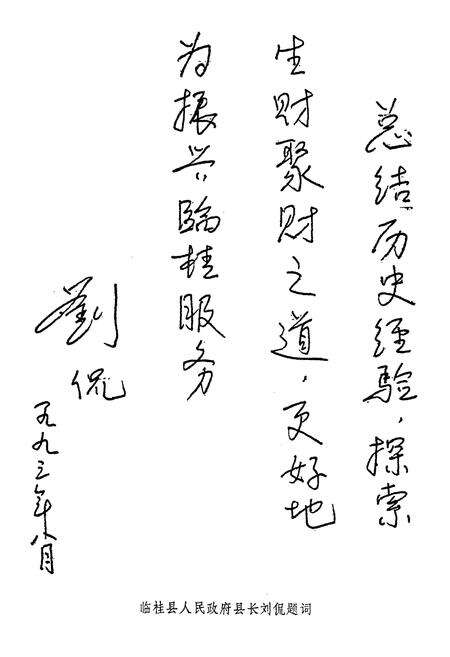 总结历史经验，探索
生财聚财之道，更好地
为振兴临桂服务
劉侃
一九九三年八月
临桂县人民政府县长刘侃题词